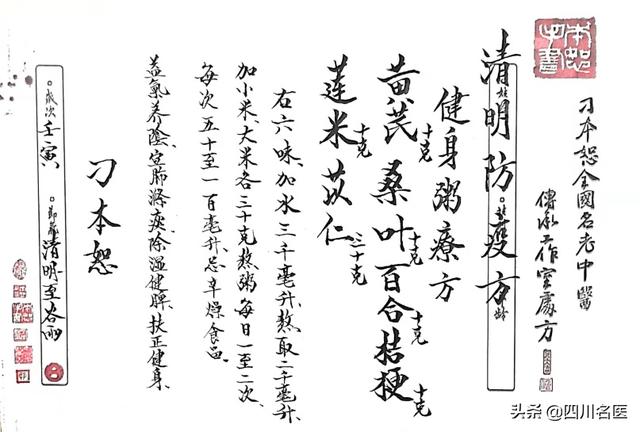 本恕手書
刁本恕全國名老中醫
傳承工作室處方
清明防疫方
健身粥療方
黄芪十克 桑叶十克 百合十克 桔梗十克
莲米十克 苡仁三十克
右六味、加水三千毫升、熬取二千毫升、
加小米、大米各三十克熬粥、每日一至二次、
每次五十至一百毫升、忌辛燥食品。
益氣养陰、宣肺滌痰、除湿健脾、扶正健身、
刁本恕
歲次壬寅 節氣清明至谷雨
头条 @四川名医